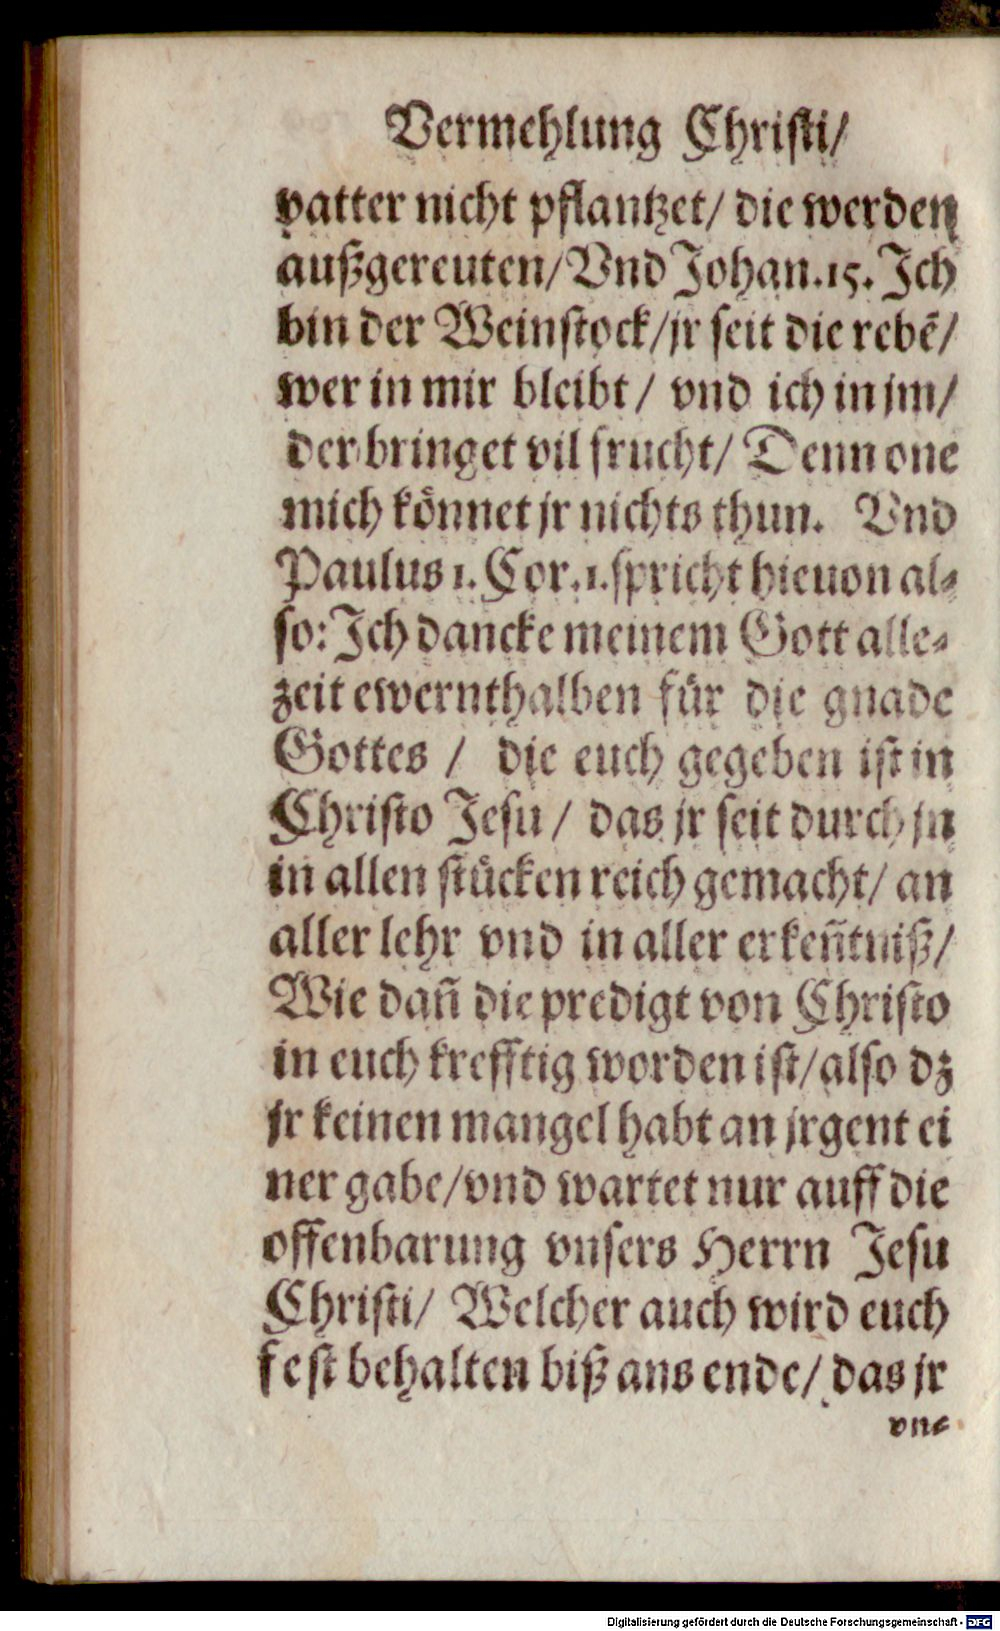 Vermehlung Christi/
vatter nicht pflantzet/ die werden
außgereuten/ Vnd Johan.15. Ich
bin der Weinstock/ jr seit die rebē/
wer in mir bleibt/ vnd ich in jm/
der bringet vil frucht/ Denn one
mich können jr nichts thun. Vnd
Paulus 1. Cor.1. spricht hieuon al-
so: Ich dancke meinem Gott alle-
zeit ewernthalben für die gnade
Gottes / die euch gegeben ist in
Christo Jesu / das jr seit durch jn
in allen stücken reich gemacht/ an
aller lehr vnd in aller erken̄tniß/
Wie dan̄ die predigt von Christo
in euch krefftig worden ist/ also dz
jr keinen mangel habt an jrgent ei
ner gabe/ vnd wartet nur auff die
offenbarung vnsers Herrn Jesu
Christi/ Welcher auch wird euch
fest behalten biß ans ende/ das jr
vn-
Digitalisierung gefördert durch die Deutsche Forschungsgemeinschaft - DFG